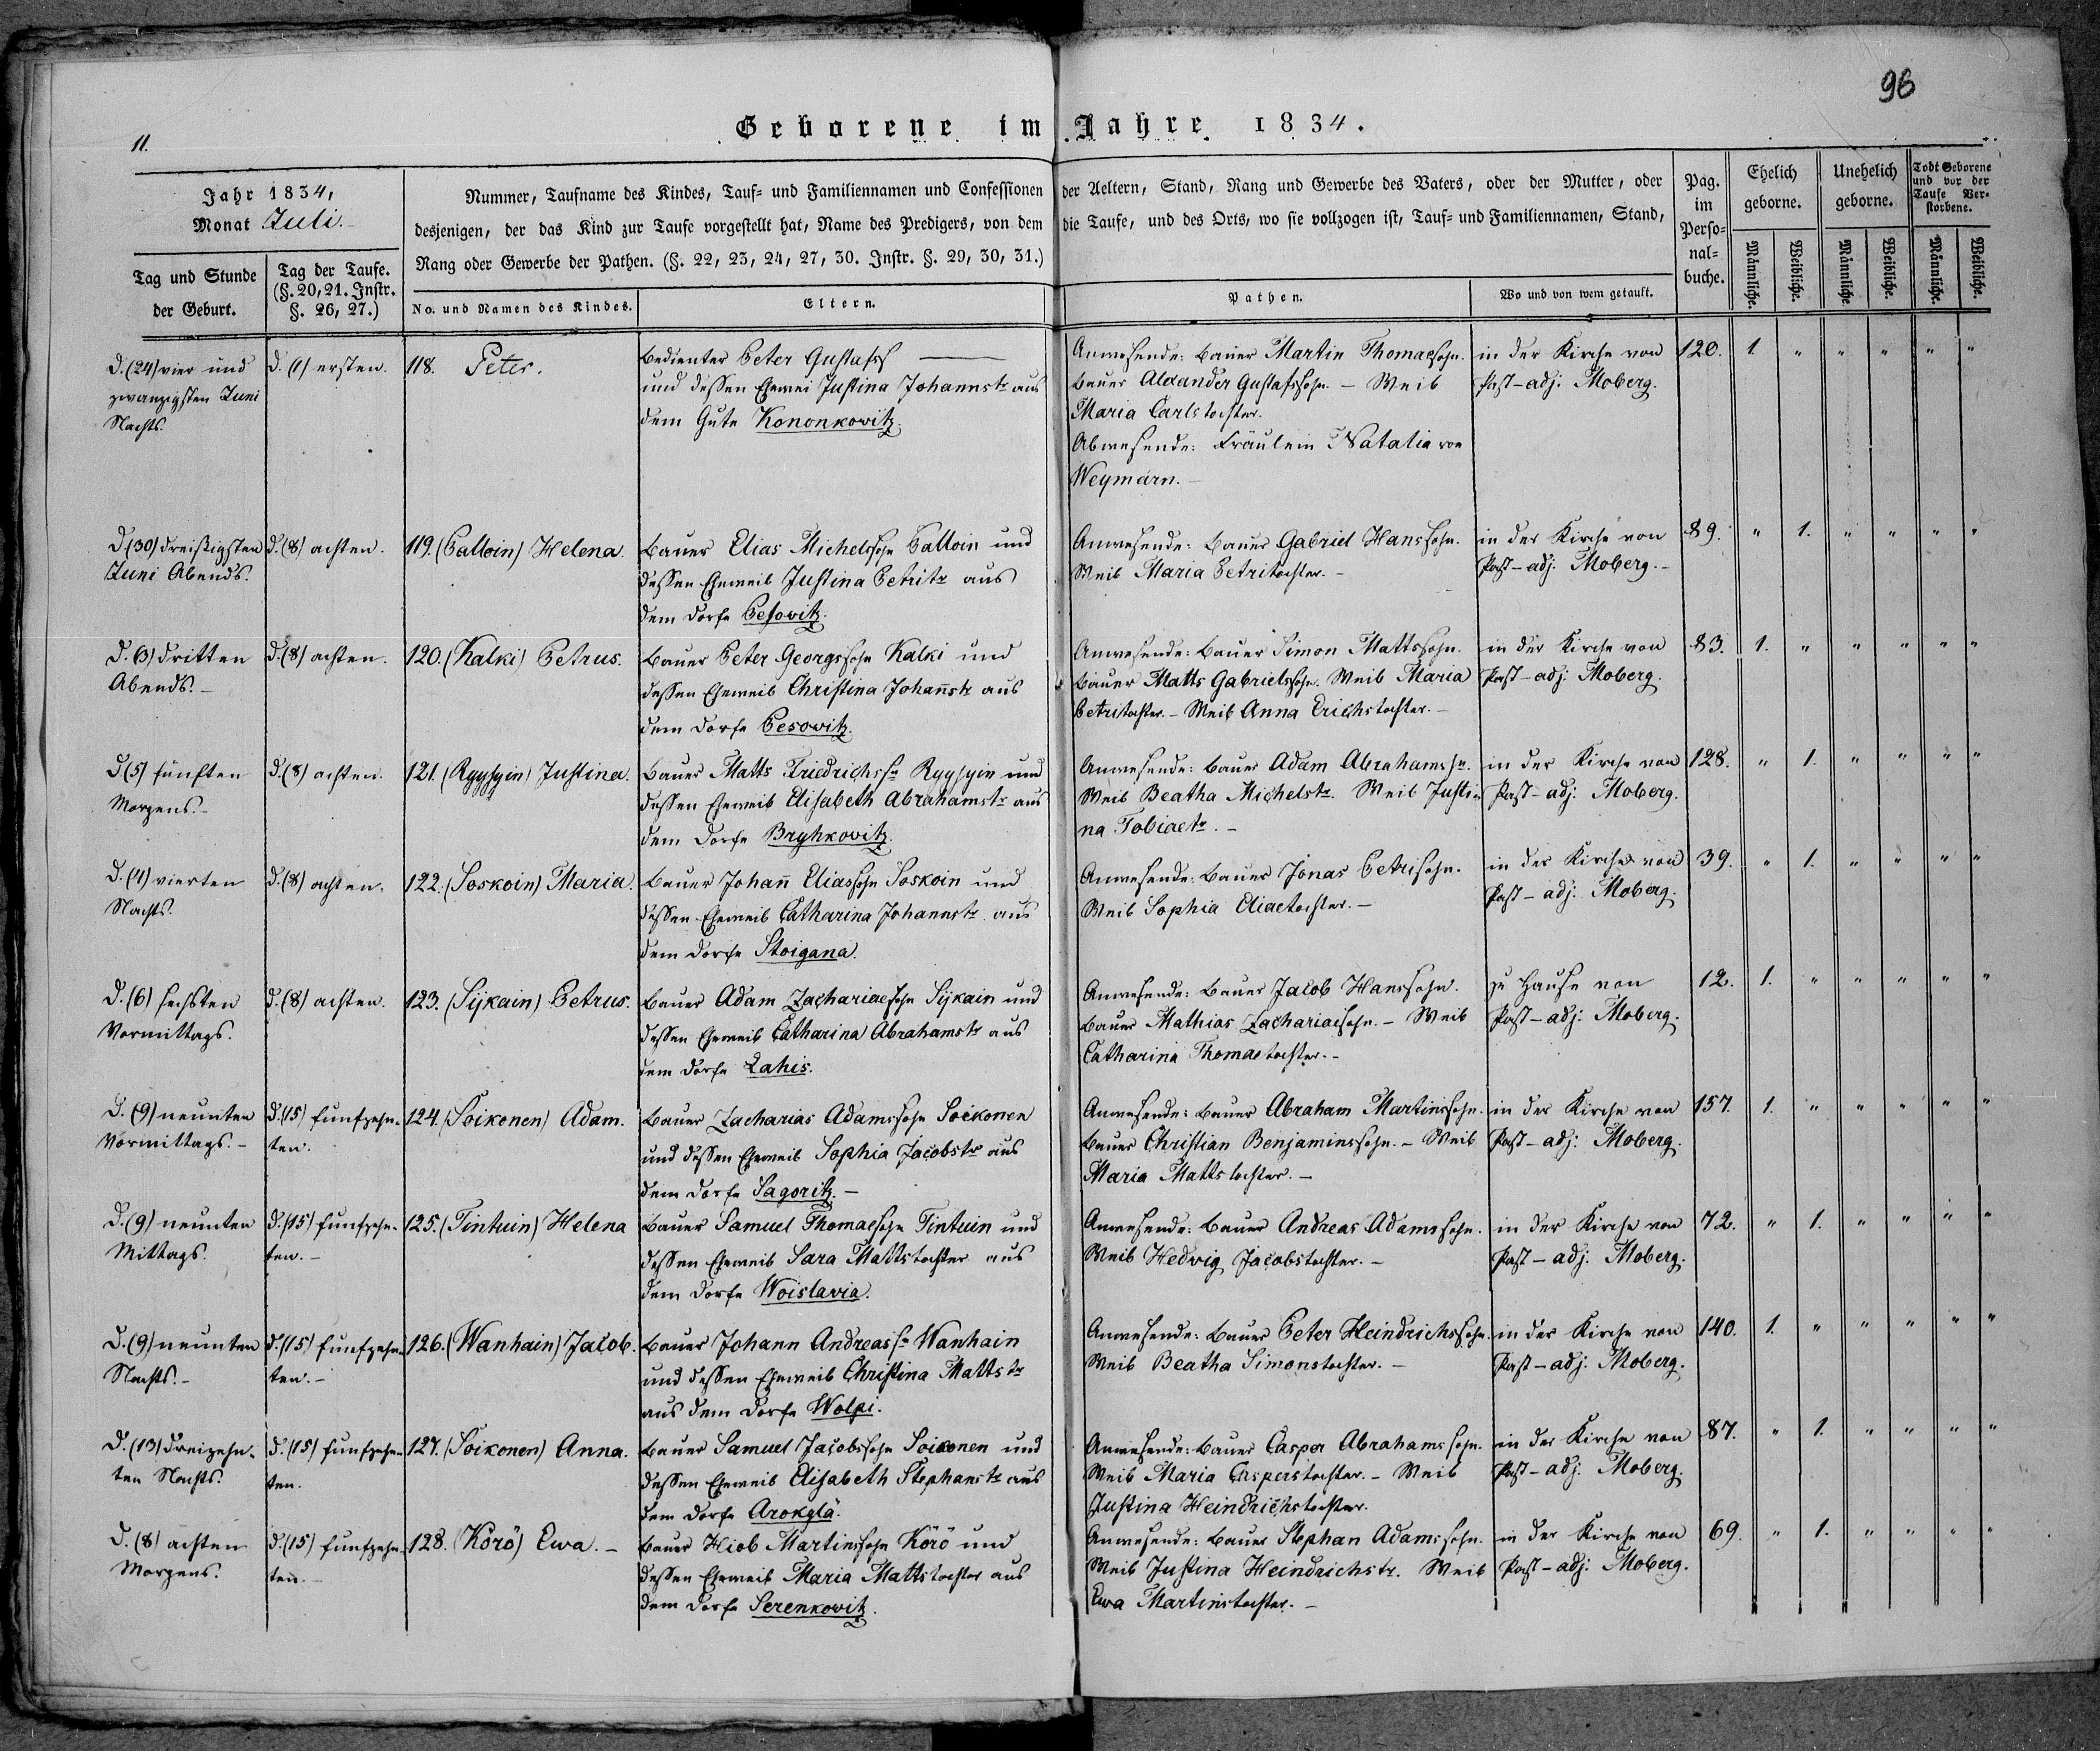 96
11.
Geborene im Jahre 1834.
Jahr 1834,
Monat Juli.
Tag und Stunde
der Geburt.
Tag der Taufe.
(§. 20, 21. Instr.
§. 26, 27.)
Nummer, Taufname des Kindes, Tauf= und Familiennamen und Confessionen der Aeltern, Stand, Rang und Gewerbe des Vaters, oder der Mutter, oder
desjenigen, der das Kind zur Taufe vorgestellt hat, Name des Predigers, von dem die Taufe, und des Orts, wo sie vollzogen ist, Tauf= und Familiennamen, Stand,
Rang oder Gewerbe der Pathen. (§. 22, 23, 24, 27, 30. Instr. §. 29, 30, 31.)
No. und Namen des Kindes.
Eltern.
Pathen.
Wo und von wem getauft.
Pag.
im
Perso=
nal=
buche.
Ehelich
geborne.
Unehelich
geborne.
Todt Geborene
und vor der
Taufe Ver=
storbene.
Männliche.
Weibliche.
Männliche.
Weibliche.
Männliche.
Weibliche.
d. (24) vier und
zwanzigsten Juni
Nachts.
d. (1) ersten.
118. Peter.
Bedienter Peter Gustafss
und dessen Ehewei Justina Johannstr aus
dem Gute Kononkowitz.
Anwesende: Bauer Martin Thomaesohn.
Bauer Alexander Gustafssohn. – Weib
Maria Carlstochter.
Abwesende: Fräulein Natalia von
Weymarn. –
in der Kirche von
Past – adj: Moberg.
120. 1. " " " " "
d. (30) dreißigsten
Juni Abends.
d. (8) achten.
119. (Palloin) Helena.
Bauer Elias Michelssohn Palloin und
dessen Eheweib Justina Petritr aus
dem Dorfe Pesowitz.
Anwesende: Bauer Gabriel Hanssohn.
Weib Maria Petritochter. –
in der Kirche von
Past – adj: Moberg. –
89. " 1. " " " "
d. (3) dritten
Abends. –
d. (8) achten.
120. (Kalki) Petrus.
Bauer Peter Georgssohn Kalki und
dessen Eheweib Christina Johan̄str aus
dem Dorfe Pesowitz.
Anwesende: Bauer Simon Mattssohn.
Bauer Matts Gabrielssohn. Weib Maria
Petritochter. – Weib Anna Erichstochter. –
in der Kirche von
Past – adj: Moberg.
83. 1. " " " " "
d. (5) fünften
Morgens. –
d. (8) achten.
121. (Ryysyin) Justina.
Bauer Matts Friedrichssn Ryysyin und
dessen Eheweib Elisabeth Abrahamstr aus
dem Dorfe Bryhkowitz.
Anwesende: Bauer Adam Abrahamssn.
Weib Beatha Michelstr. Weib Justi=
na Tobiaetr. –
in der Kirche von
Past – adj: Moberg.
128. " 1. " " " "
d. (4) vierten
Nachts.
d. (8) achten.
122. (Soskoin) Maria.
Bauer Johan̄ Eliassohn Soskoin und
dessen Eheweib Catharina Johannstr aus
dem Dorfe Stoigana.
Anwesende: Bauer Jonas Petrisohn.
Weib Sophia Eliaetochter. –
in der Kirche von
Past – adj: Moberg.
39. " 1. " " " "
d. (6) sechsten
Vormittags.
d. (8) achten.
123. (Sijkain) Petrus.
Bauer Adam Zachariaesohn Sijkain und
dessen Eheweib Catharina Abrahamstr aus
dem Dorfe Lahis.
Anwesende: Bauer Jacob Hanssohn.
Bauer Mathias Zachariaesohn. – Weib
Catharina Thomaetochter. –
zu Hause von
Past – adj: Moberg.
12. 1. " " " " "
d. (9) neunten
Vormittags. –
d. (15) funfzehn=
ten.
124. (Soikonen) Adam.
Bauer Zacharias Adamssohn Soikonen
und dessen Eheweib Sophia Jacobstr aus
dem Dorfe Sagoritz. –
Anwesende: Bauer Abraham Martinssohn.
Bauer Christian Benjaminssohn. – Weib
Maria Mattstochter. –
in der Kirche von
Past – adj: Moberg.
157. 1. " " " " "
d. (9) neunten
Mittags.
d. (15) funfzehn=
ten. –
125. (Tintuin) Helena
Bauer Samuel Thomaesohn Tintuin und
dessen Eheweib Sara Mattstochter aus
dem Dorfe Woislavia.
Anwesende: Bauer Andreas Adamssohn.
Weib Hedvig Jacobstochter. –
in der Kirche von
Past – adj: Moberg.
72. " 1. " " " "
d. (9) neunten
Nachts. –
d. (15) funfzehn=
ten. –
126. (Wanhain) Jacob.
Bauer Johann Andreassn Wanhain
und dessen Eheweib Christina Mattstr
aus dem Dorfe Wolpi.
Anwesende: Bauer Peter Heindrichssohn.
Weib Beatha Simonstochter. –
in der Kirche von
Past – adj: Moberg.
140. 1. " " " " "
d. (13) dreizehn=
ten Nachts.
d. (15) funfzehn=
ten.
127. (Soikonen) Anna.
Bauer Samuel Jacobssohn Soikonen und
dessen Eheweib Elisabeth Stephanstr aus
dem Dorfe Arokylä.
Anwesende: Bauer Casper Abrahamssohn.
Weib Maria Casperstochter. – Weib
Justina Heindrichstochter.
in der Kirche von
Past – adj: Moberg.
87. " 1. " " " "
d. (8) achten
Morgens.
d. (15) funfzehn=
ten. –
128. (Körö) Ewa. –
Bauer Hiob Martinssohn Körö und
dessen Eheweib Maria Mattstochter aus
dem Dorfe Serenkowitz.
Anwesende: Bauer Stephan Adamssohn.
Weib Justina Heindrichstr. Weib
Ewa Martinstochter. –
in der Kirche von
Past – adj: Moberg.
69. " 1. " " " "